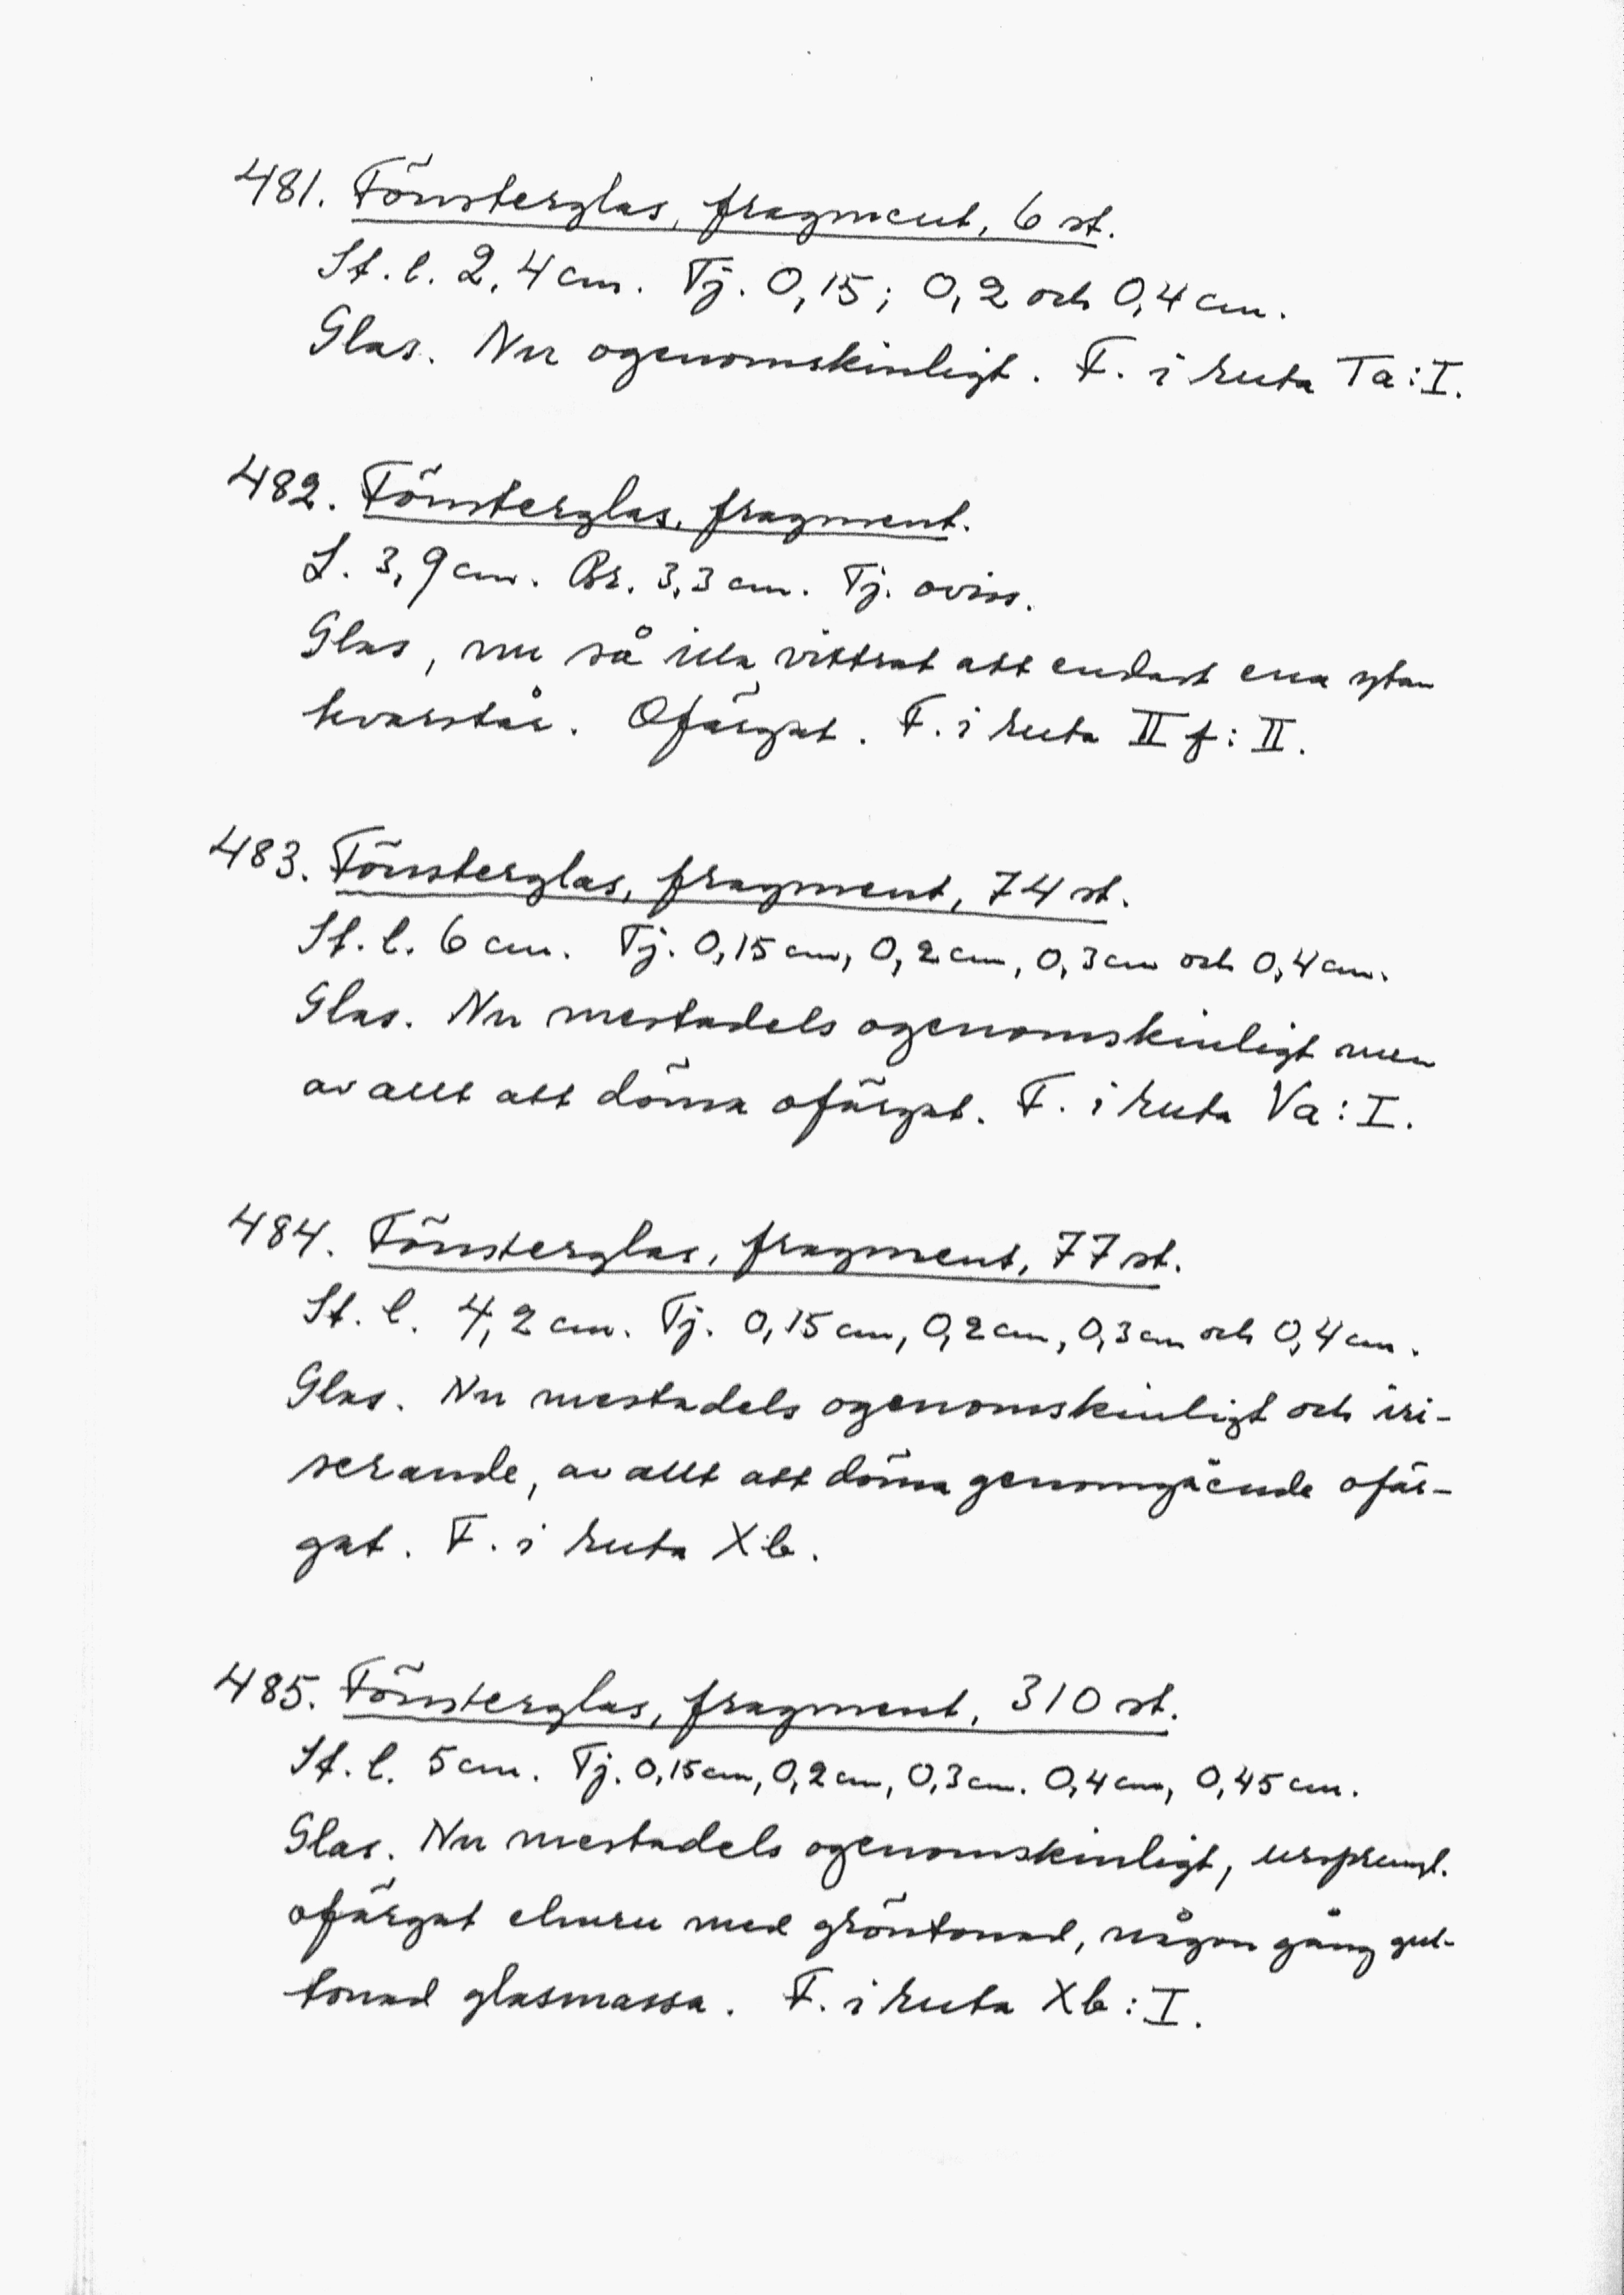 481. Fönsterglas, fragment, 6 st.
St. l. 2,4 cm. Tj. 0,15; 0,2 och 0,4 cm.
Glas. Nu ogenomskinligt. F. i ruta Ta:I.
482. Fönsterglas, fragment.
L. 3,9 cm. Br. 3,3 cm. Tj. oviss.
Glas, nu så illa vittrat att endast ena ytan
kvarstår. Ofärgat. F. i ruta II f: II.
483. Fönsterglas, fragment, 74 st.
St. l. 6 cm. Tj. 0,15 cm, 0,2 cm, 0,3 cm och 0,4 cm.
Glas. Nu mestadels ogenomskinligt men
av allt att döma ofärgat. F. i ruta Va: I.
484. Fönsterglas, fragment, 77 st.
St. l. 4,2 cm. Tj. 0,15 cm, 0,2 cm, 0,3 cm och 0,4 cm.
Glas. Nu mestadels ogenomskinligt och iri-
serande, av allt att döma genomgående ofär-
gat. F. i ruta Xb.
485. Fönsterglas, fragment, 310 st.
St. l. 5 cm. Tj. 0,15 cm, 0,2 cm, 0,3 cm. 0,4 cm, 0,45 cm.
Glas. Nu mestadels ogenomskinligt, ursprungl.
ofärgat ehuru med gröntonad, någon gång gul-
tonad glasmassa. F. i ruta Xb: I.